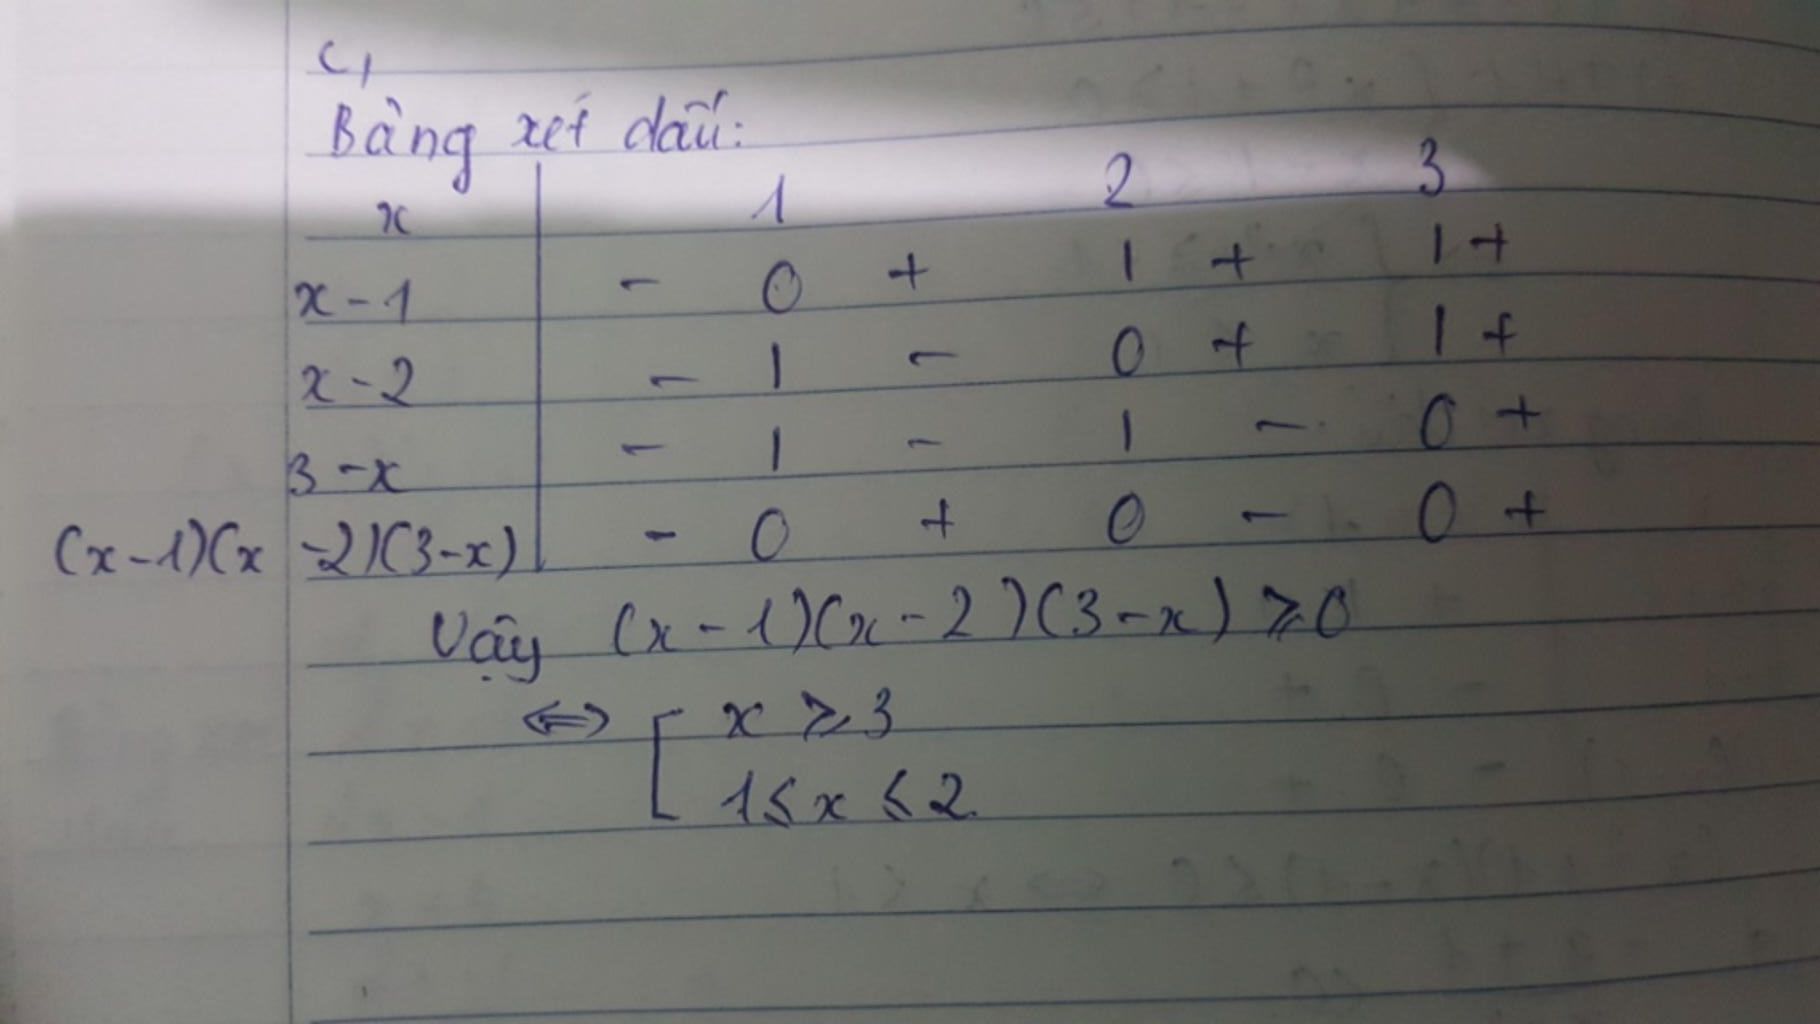 c,
Bảng xét dấu:
x 1 2 3
x-1 - 0 + | + | +
x-2 - | - 0 + | +
3-x - | - | - 0 +
(x-1)(x-2)(3-x) - 0 + 0 - 0 +
Vậy (x-1)(x-2)(3-x) ⩾ 0
⇔ [ x ⩾ 3
1 ≤ x ≤ 2